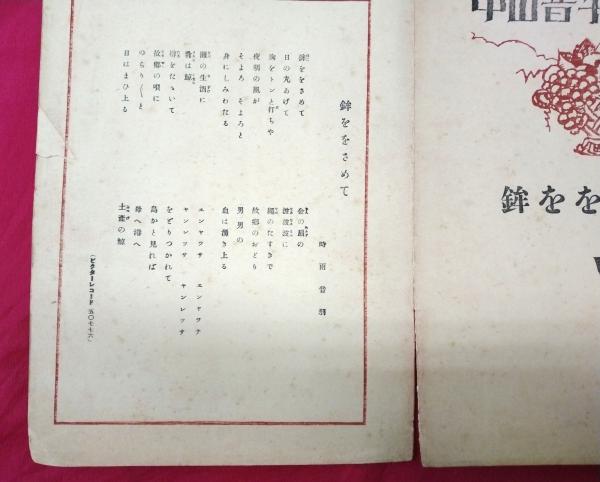 鉾ををさめて
時雨音羽
鉾ををさめて
日の丸あげて
胸をトンと打ちや
夜明の風が
そよろ そよろと
身にしみわたる
灘の生酒に
肴は鯨
樽をたゝいて
故郷の唄に
のらり〳〵と
日はまひ上る
金の扇の
波波波に
縄のたすきで
故郷のおどり
男男の
血は湧き上る
エンヤッサ エンヤッサ
ヤンレッサ ヤンレッサ
をどりつかれて
島かと見れば
母へ港へ
土産の鯨
(ビクターレコード 五〇七七六)
中山晋
鉾をを